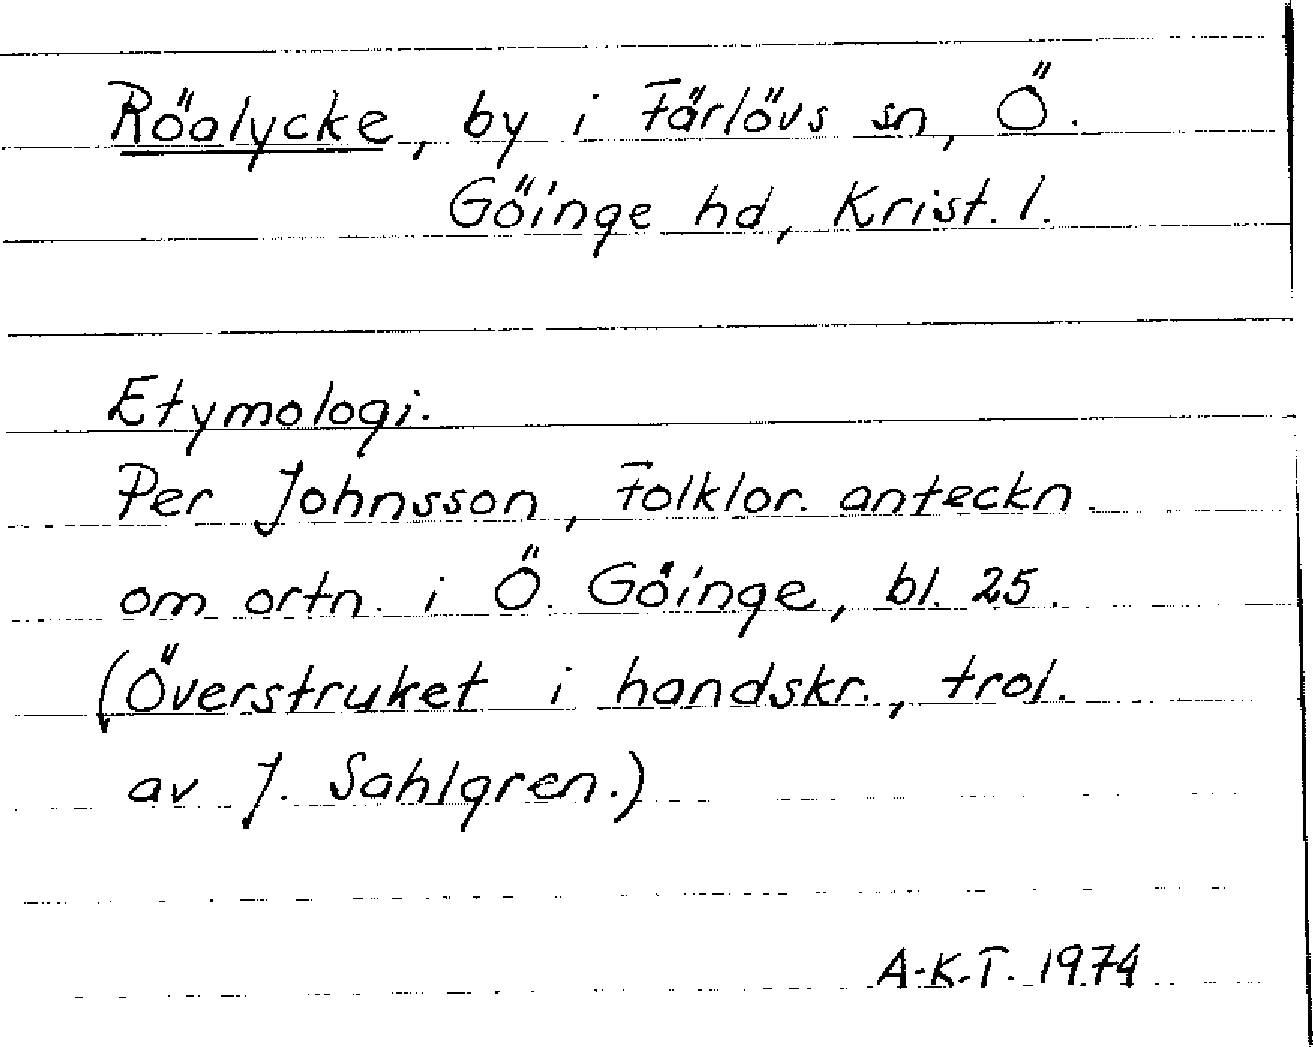 Röalycke, by i Färlövs sn, Ö.
Göinge hd, Krist. l.
Etymologi.
Per Johnsson, Folklor. anteckn.
om ortn. i Ö. Göinge, bl. 25.
(Överstruket i handskr., trol.
av J. Sahlgren.)
A-K.T. 1974